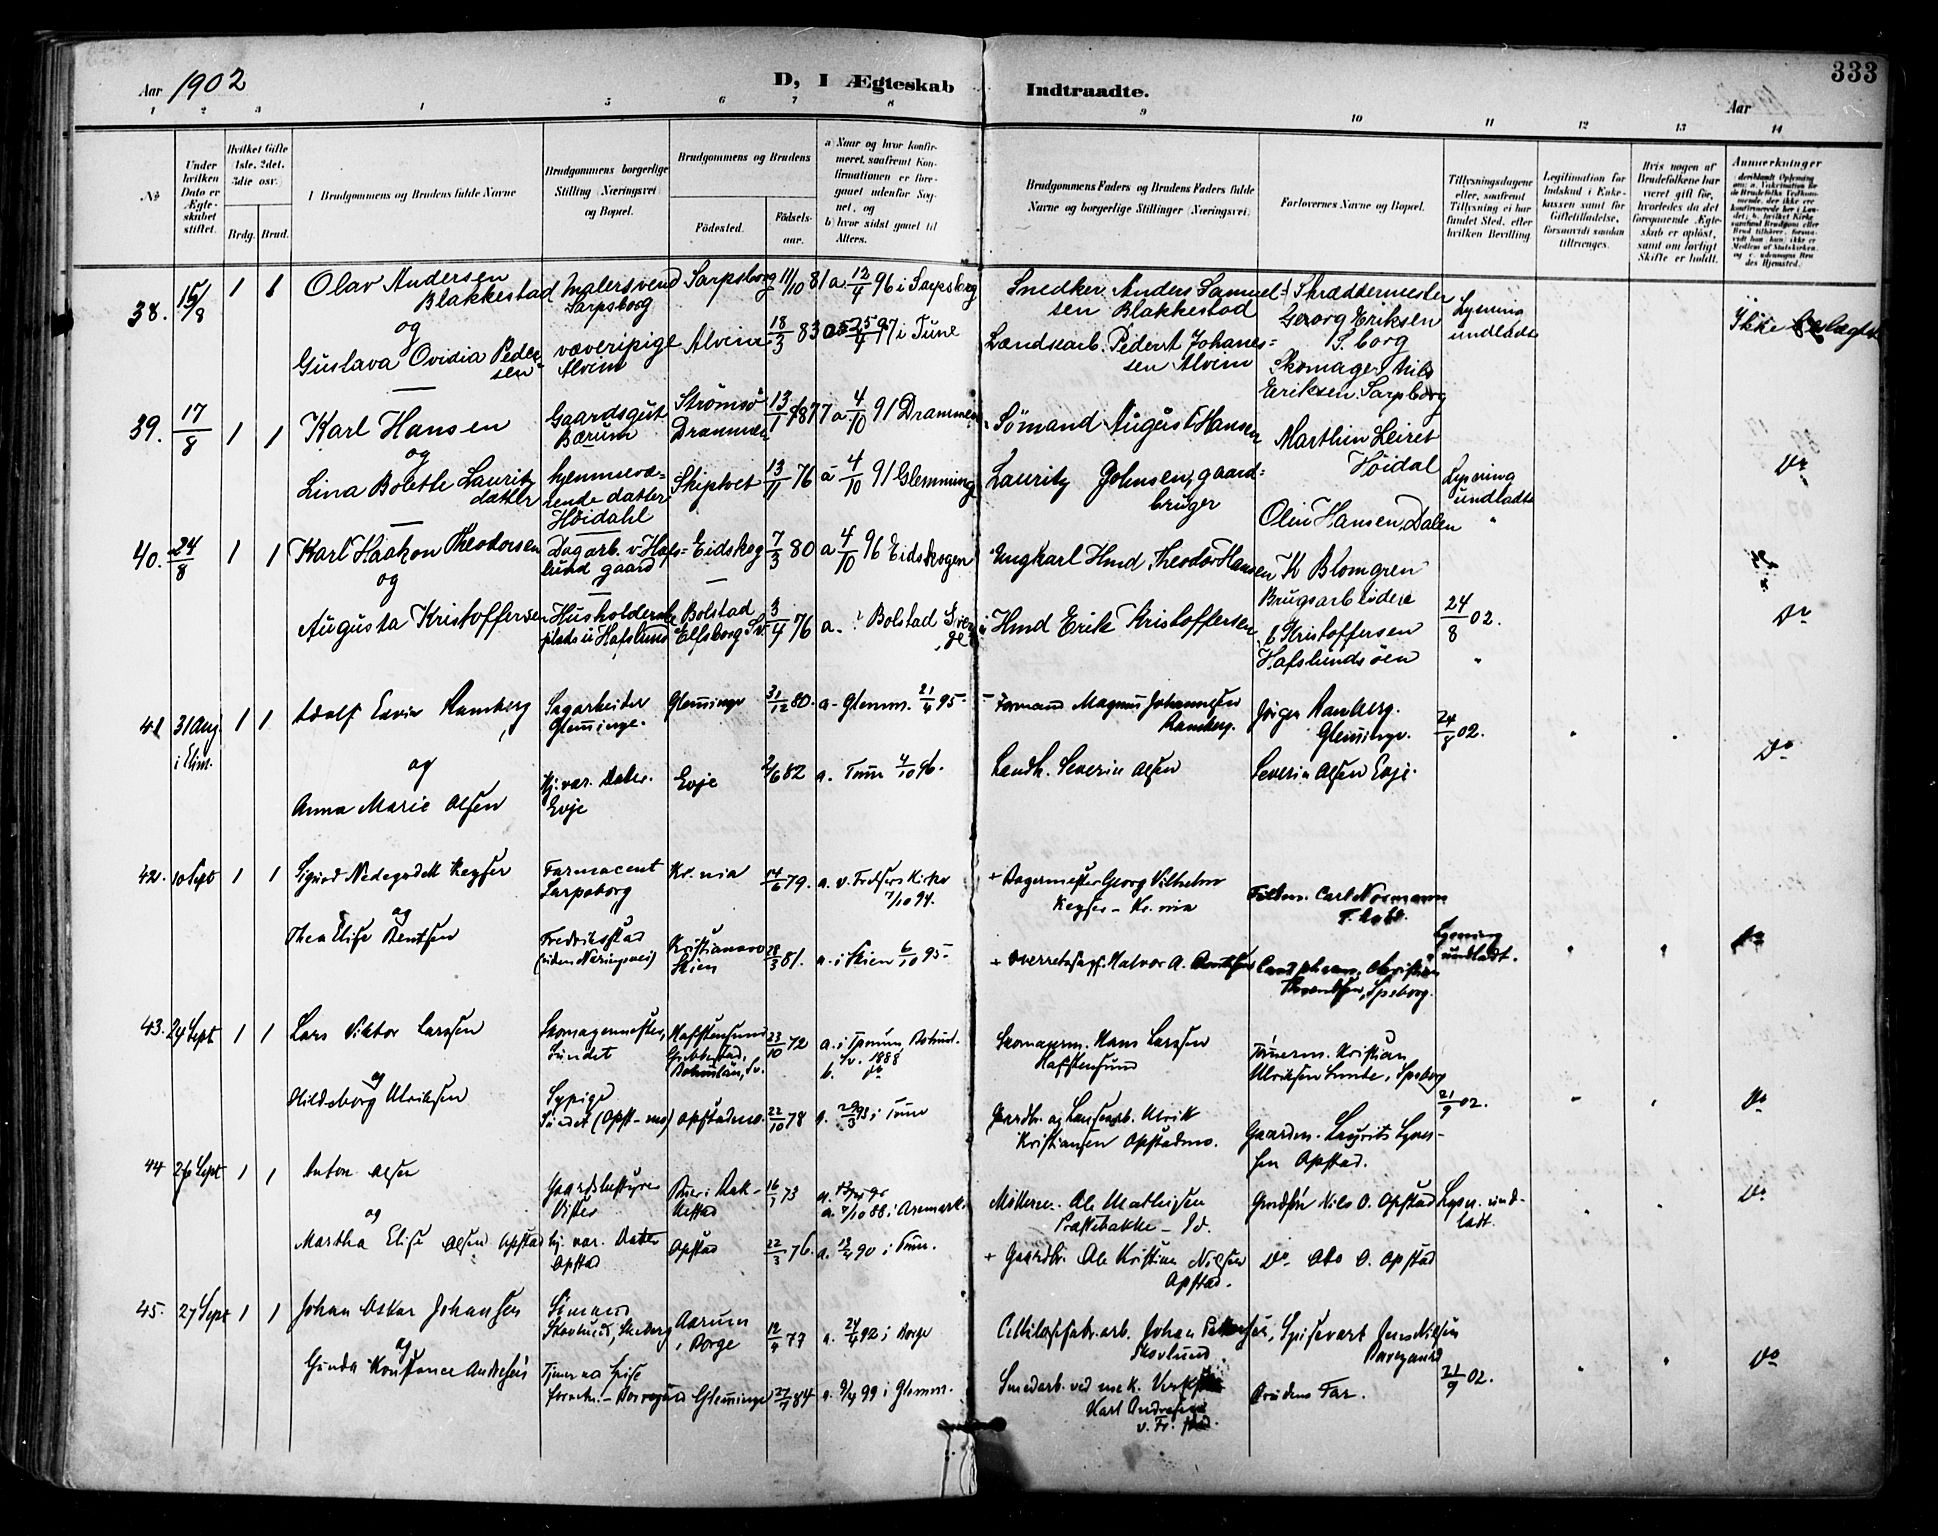 Aar 1902
D, I Ægteskab
Indtraadte.
Aar
333
1 2 3 4 5 6 7 8 9 10 11 12 13 14
No
Under hvilken Dato er Ægteskabet stiftet.
Hvilket Gifte 1ste, 2det, 3die osv.)
Brdg. Brud.
Brudgommens og Brudens fulde Navne
Brudgommens borgerlige Stilling (Næringsvei) og Bopæl.
Brudgommens og Brudens
Fødested.
Fødselsaar.
a) Naar og hvor konfirmeret, saafremt Konfirmationen er foregaaet udenfor Sognet, og
b) hvor sidst gaaet til Alters.
Brudgommens Faders og Brudens Faders fulde Navne og borgerlige Stillinger (Næringsvei)
Forlovernes Navne og Bopæl.
Tillysningsdagene eller, saafremt Tillysning ei har fundet Sted, efter hvilken Bevilling
Legitimation for Indskud i Enkekassen samt for Giftetilladelse, forsaavidt saadan tiltrænges.
Hvis nogen af Brudefolkene har været gift før, hvorledes da det foregaaende Ægteskab er opløst, samt om lovligt Skifte er holdt.
Anmærkninger
38. 15/8 1 1 Olav Andersen Blakkestad Malersvend Sarpsborg Sarpsborg 11/10 81 a 12/4 96 i Sarpsborg Snedker Anders Samuelsen Blakkestad Skræddermester Georg Eriksen S.borg Lysning undladt Ikke beslægtet
og
Gustava Ovidia Pedersen væveripige Alvim Alvim 18/3 83 25/4 97 i Tune Landsearb. Peder Johanessen Alvim Skomager Nils Eriksen Sarpsborg
39. 17/8 1 1 Karl Hansen Gaardsgut Bærum Strømsö Drammen 13/1 1877 a 4/10 91 Drammen Sömand August Hansen Marthin Leiret Höidal
og
Lina Bolette Lauritzdatter hjemmeværende datter Höidahl Skiptvet 13/11 76 a 4/10 91 Glemminge Lauritz Johnsen, gaardbruger Olin Hansen Dalen Lysning undladt Do
40. 24/8 1 1 Karl Haakon Theodorsen Dagarb. v. Hafslund gaard Eidskog 7/3 80 a 4/10 96 Eidskogen Ungkarl Hmd Theodor Hansen K Blomgren Brugsarbeidere
og
Augusta Kristoffersen Husholderske Bolstad Elfsborg Sv. 3/4 76 a. ? Bolstad Hmd Erik Kristoffersen Kristoffersen Hafslundsöen 24/8 02. Do
41 31 Aug i Elim. 1 1 Adolf Edvin Ramberg Sagarbeider Glemminge. Glemminge 31/12 80. a- Glemm. 21/4 95 Formand Magnus Johannesen Ramberg. Jörgen Ramberg. Glemminge. 24/8 02. Do
og
Anna Marie Olsen Hj. vær. Dater. Evje Evje 2/6 82 a. Tune 4/10 96. Landh. Severin Olsen Severin Olsen Evje.
42. 10 Sept 1 1 Sigurd Nedegaardt Keyser Farmacent Sarpsborg Kr. nia 14/6 79. a. v. Frelsers Kirke 7/10 94. + Bagermester Georg Vilhelm Keyser - Kr. nia Carl Normann
og
Thea Elise Bentsen Fredriksstad (uden Næringsvei) Skien 28/3 81. a. i Skien 6/10 95 + Overretssagf. Halvor A. Bentsen Lysning undladt. Do
43. 24 Sept 1 1 Lars Viktor Larssen Skomagermester, Sundet Hafstensund Grebbestad, Bohuslän, Sv. 23/10 72 a. i Tanum, Bohusl. Sv. 1888 b. do Skomagerm. Hans Larssen Hafstensund Kristian Ulriksen Sunde, Spsborg
og
Hildeborg Ulriksen Sypige Sundet (Opst-mo) Opstadmo. 22/10 78 a. 20/3 93 i Tune Gaardbr. og Landsearb. Ulrik Kristiansen Opstadmo. Gaardm. Laurits Opstad. 21/9 02. Do
44 26 Sept 1 1 Anton Olsen Gaardsbestyrer Vister Rakkestad 16/7 73 a. 7/10 88 i Aremark. Möllerm. Ole Mathisen Præstebakke - Id. Nils O. Opstad Lysn. undladt. Do
og
Martha Elise Olsen Opstad hj. vær. Dater Opstad Opstad 22/3 76. a. 13/4 90 i Tune. + Gaardbr. Ole Kristian Nilsen Opstad. Do Oto O. Opstad
45. 27 Sept 1 1 Johan Oskar Johansen Sömand Skovlund, Skeberg Aarum, Borge 12/4 77 a. 24/4 92 i Borge Cellulosefabr.arb. Johan Skovlund Spisevært Jens Nilsen Borregaard 21/9 02. Do
og
Gunda Konstance Andresen Borregaard Glemminge 27/7 84 a. 9/4 99 i Glemm. Smedarb. ved mek. Karl Andresen v. Fr. stad. Brudens Far.